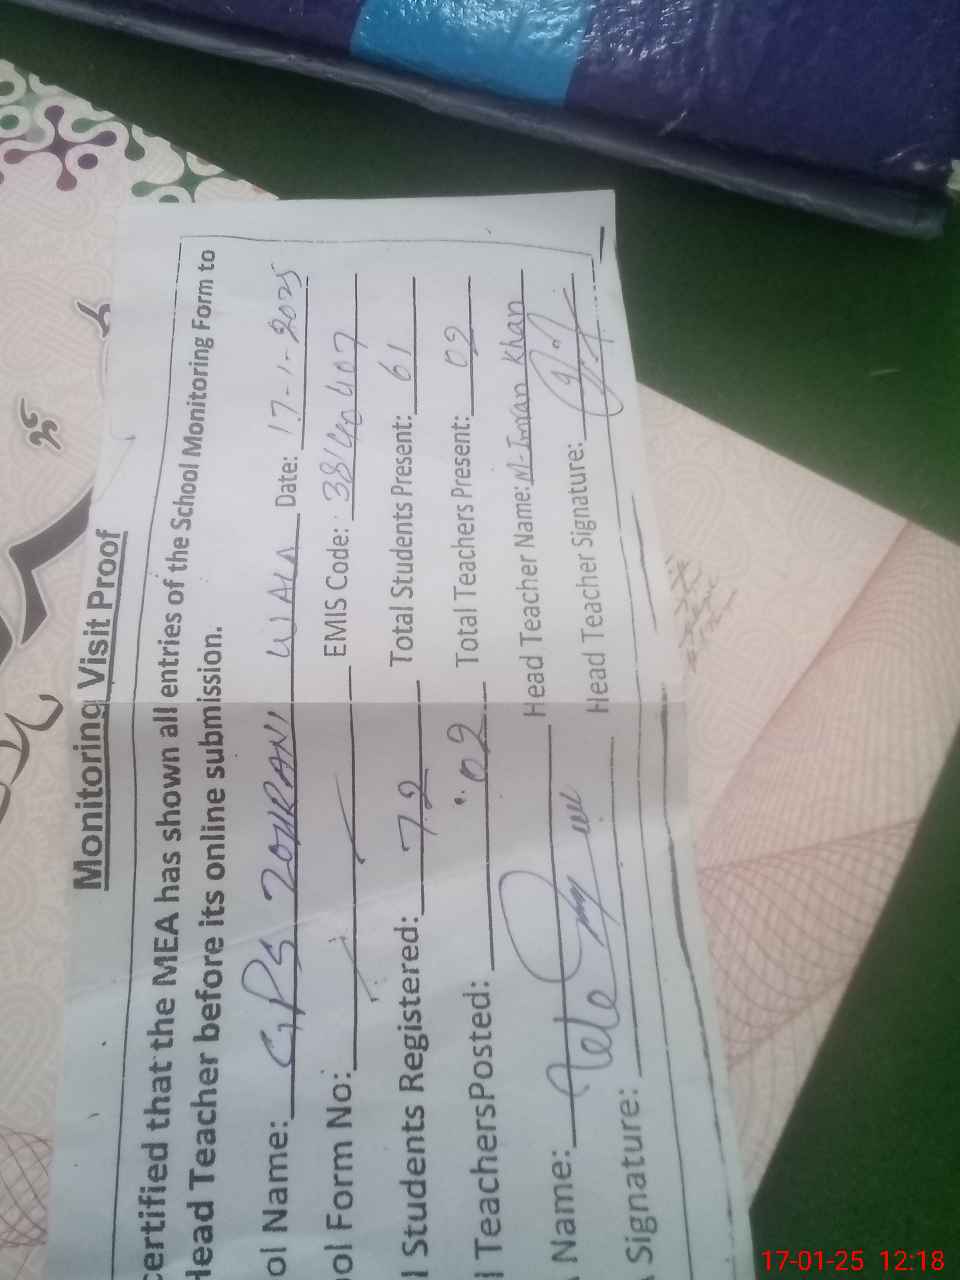 Monitoring Visit Proof
certified that the MEA has shown all entries of the School Monitoring Form to
Head Teacher before its online submission.
ol Name: GPS ZOHRANI WALA Date: 17-1-2025
ool Form No: EMIS Code: 38140407
l Students Registered: 72 Total Students Present: 61
l TeachersPosted: 02 Total Teachers Present: 02
Name: Head Teacher Name: M-Imran Khan
Signature: Head Teacher Signature:
17-01-25 12:18